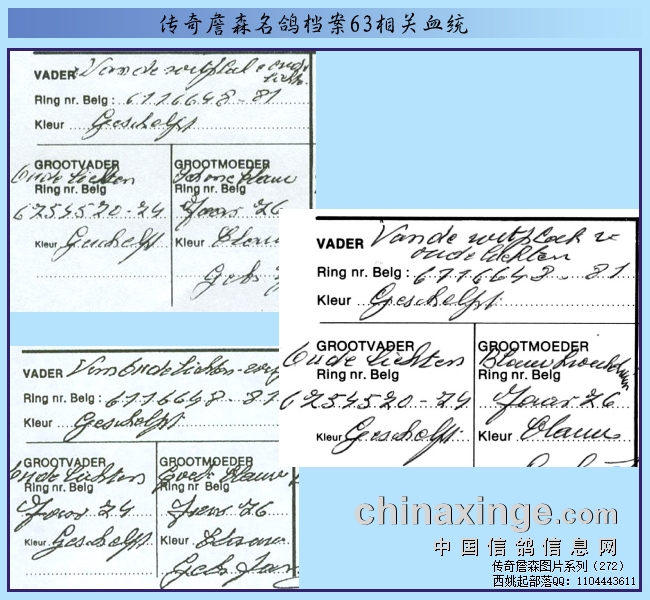 传奇詹森名鸽档案63相关血统
VADER Van de witplek oude
Lichte
Ring nr. Belg : 6776648-81
Kleur Geschelpt
GROOTVADER GROOTMOEDER
Oude Lichten Schone Blauw
Ring nr. Belg Ring nr. Belg
6254520-74 Jaar 76
Kleur Geschelpt Kleur Blauw
Geb
VADER Van de
oude Lichten
Ring nr. Belg : 6776648-81
Kleur Geschelpt
GROOTVADER GROOTMOEDER
Oude Lichten Blauw
Ring nr. Belg Ring nr. Belg
6254520-74 Jaar 76
Kleur Geschelpt Kleur Blauw
VADER Van Oude Lichten
Ring nr. Belg : 6776648-81
Kleur Geschelpt
GROOTVADER GROOTMOEDER
Oude Lichten Blauw
Ring nr. Belg Ring nr. Belg
Jaar 74 Jaar 76
Kleur Geschelpt Kleur Blauw
Geb Jan
chinaxinge.com
中国信鸽信息网
传奇詹森图片系列（272）
西姚起部落QQ：1104443611